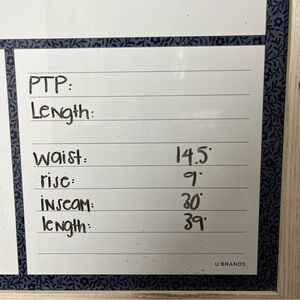 PTP:
Length:
waist: 14.5"
rise: 9"
inseam: 30"
length: 39"
U BRANDS